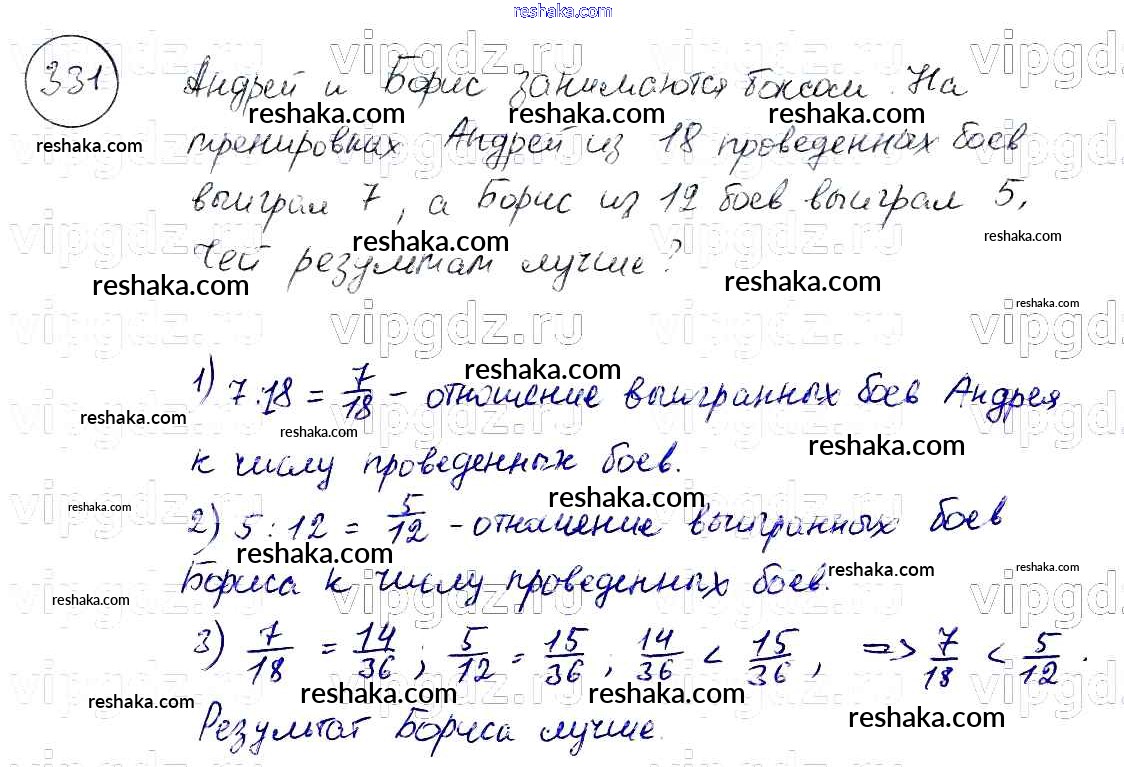 reshaka.com
331
Андрей и Борис занимаются боксом. На
тренировках Андрей из 18 проведенных боев
выиграл 7, а Борис из 12 боев выиграл 5,
Чей результат лучше?
1) 7:18 = 7/18 - отношение выигранных боев Андрея
к числу проведенных боев.
2) 5:12 = 5/12 - отношение выигранных боев
Бориса к числу проведенных боев.
3) 7/18 = 14/36; 5/12 = 15/36; 14/36 < 15/36, => 7/18 < 5/12.
Результат Бориса лучше.
vipgdz.ru
reshaka.com